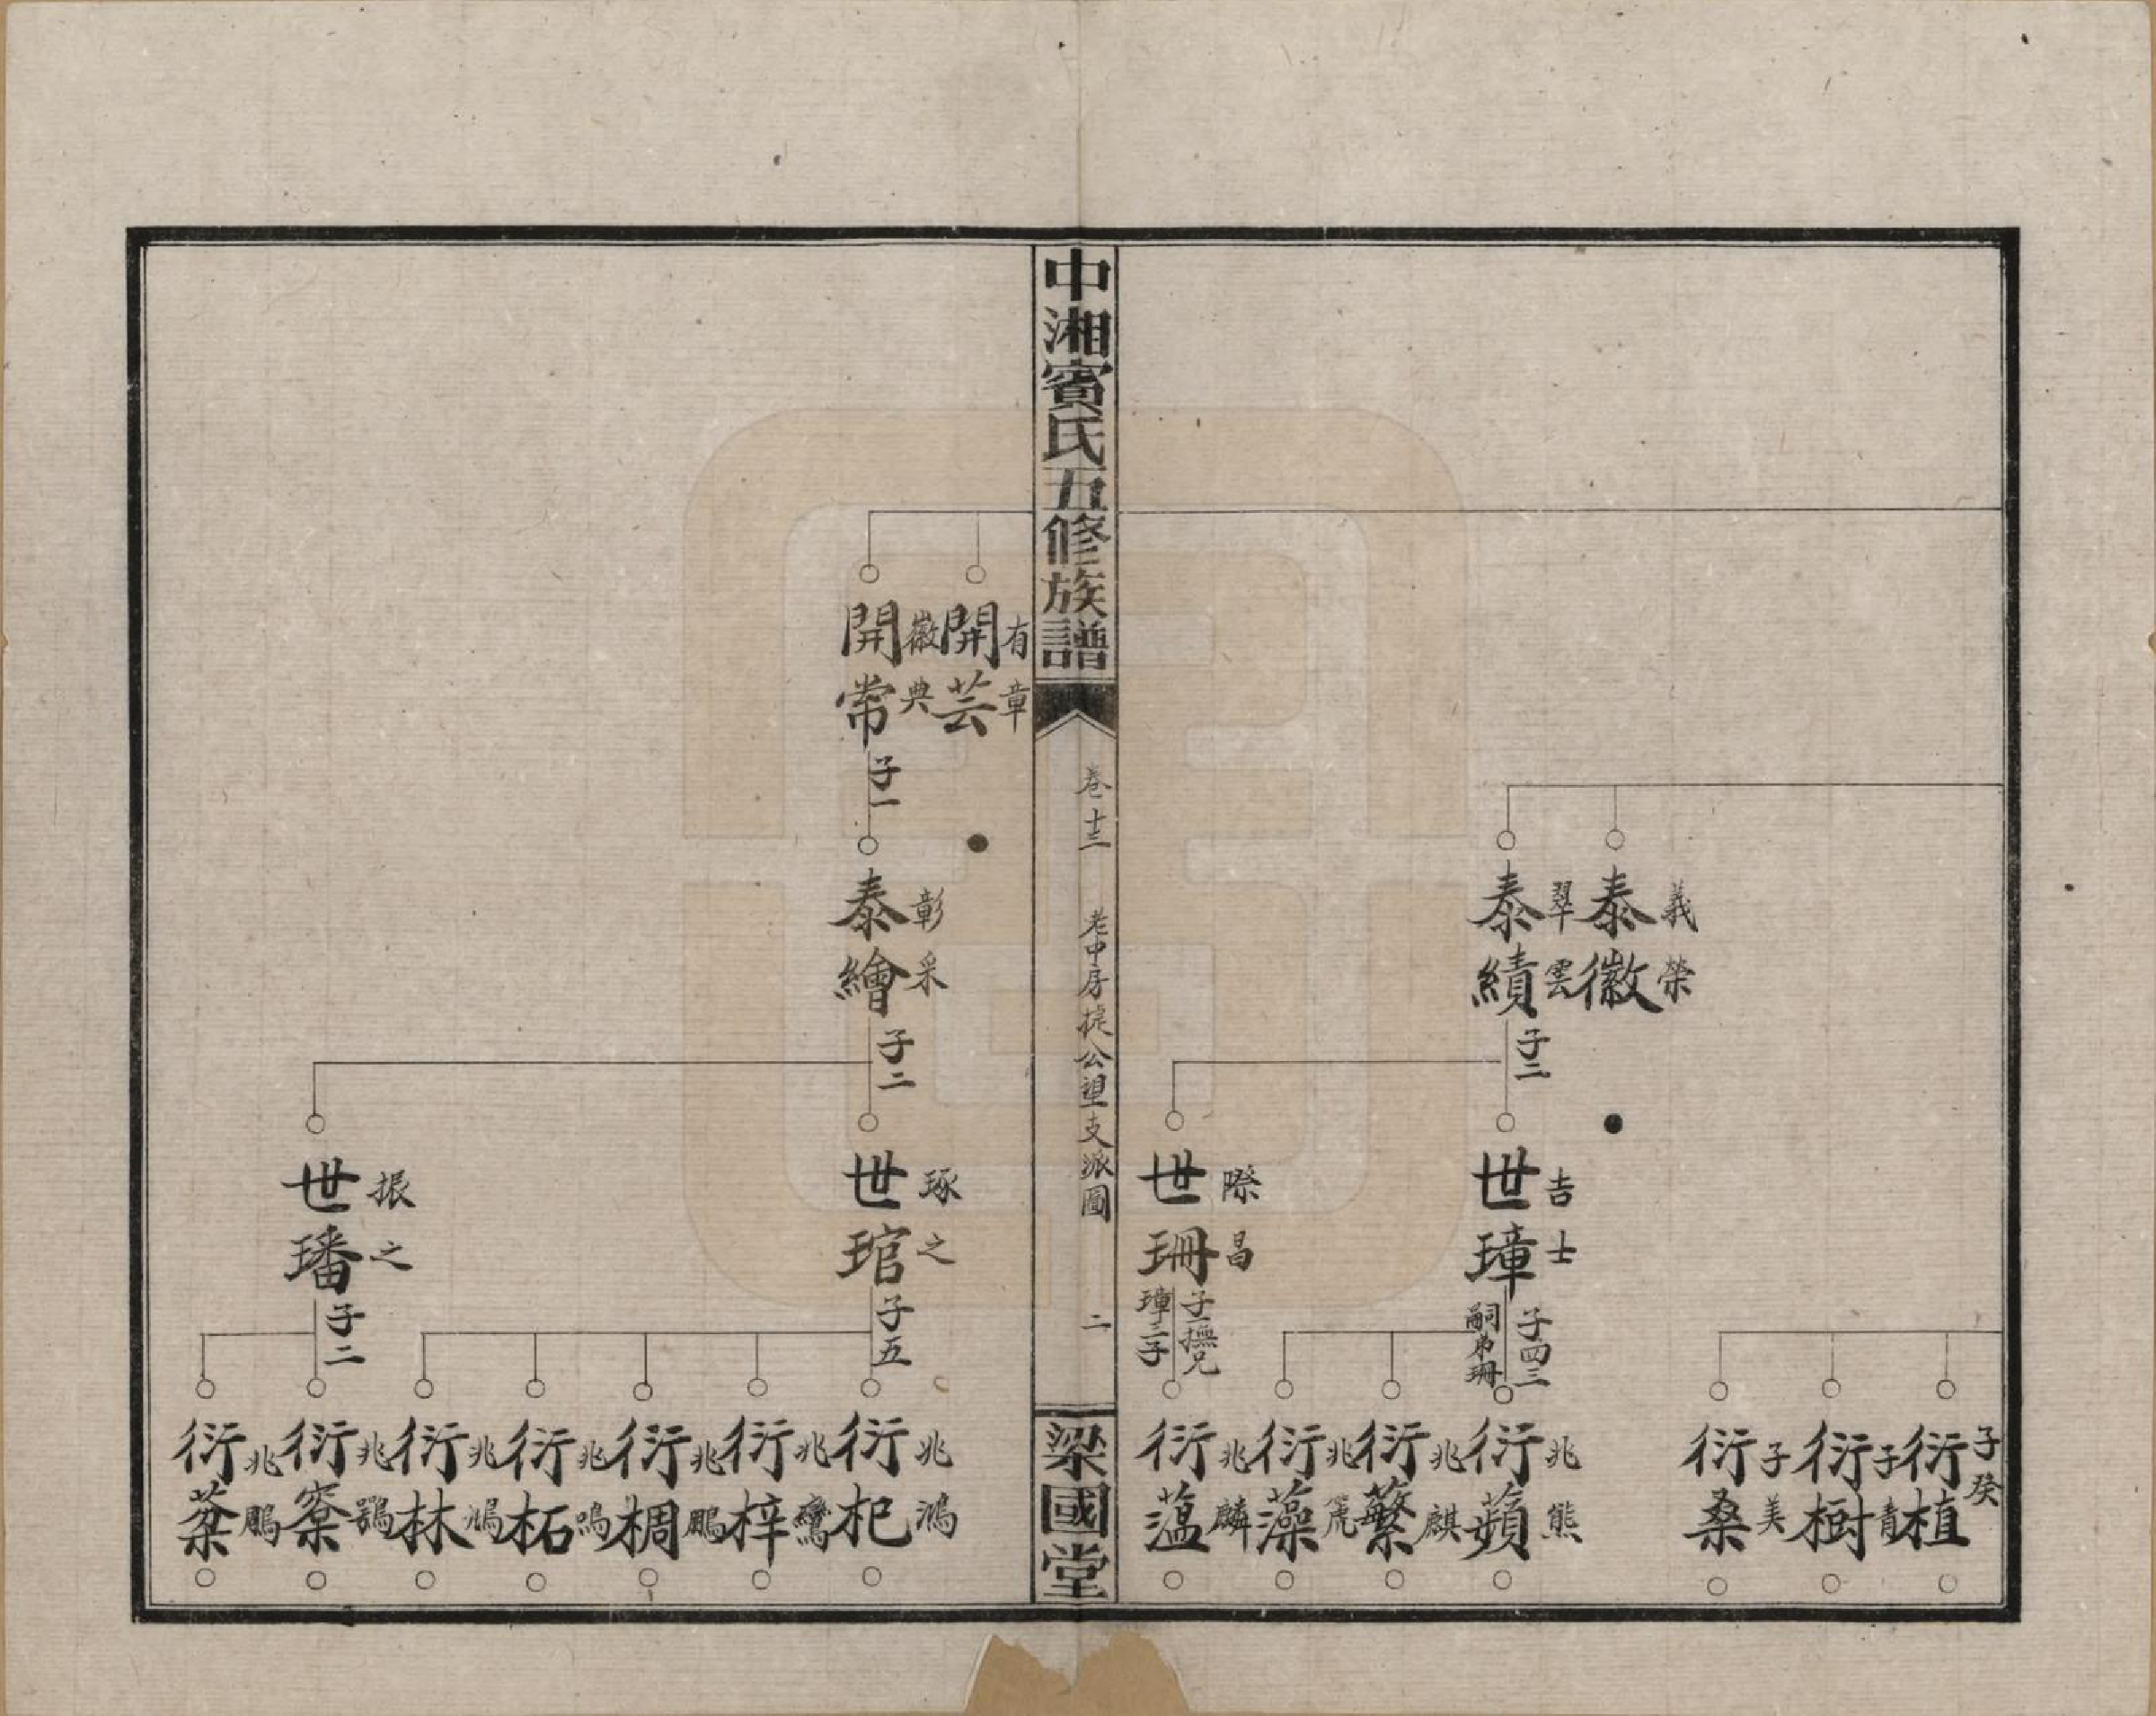 衍植 子癸
衍樹 子青
衍桑 子美
泰徽 義榮
泰績 翠雲
子二
世璋 吉士
子四三
嗣弟珊
衍蘋 兆熊
衍蘩 兆麒
衍藻 兆
衍薀 兆麟
世珊 際昌
子一撫兄
璋三子
中湘賓氏五修族譜
卷十三
老中房 公望支派圖
二
梁國堂
開芸 有章
開常 徽典
子一
泰繪 彰采
子二
世琯 琢之
子五
衍杞 兆鴻
衍梓 兆鸞
衍椆 兆鵬
衍柘 兆鳴
衍林 兆
世璠 振之
子二
衍 兆鶚
衍 兆鵬